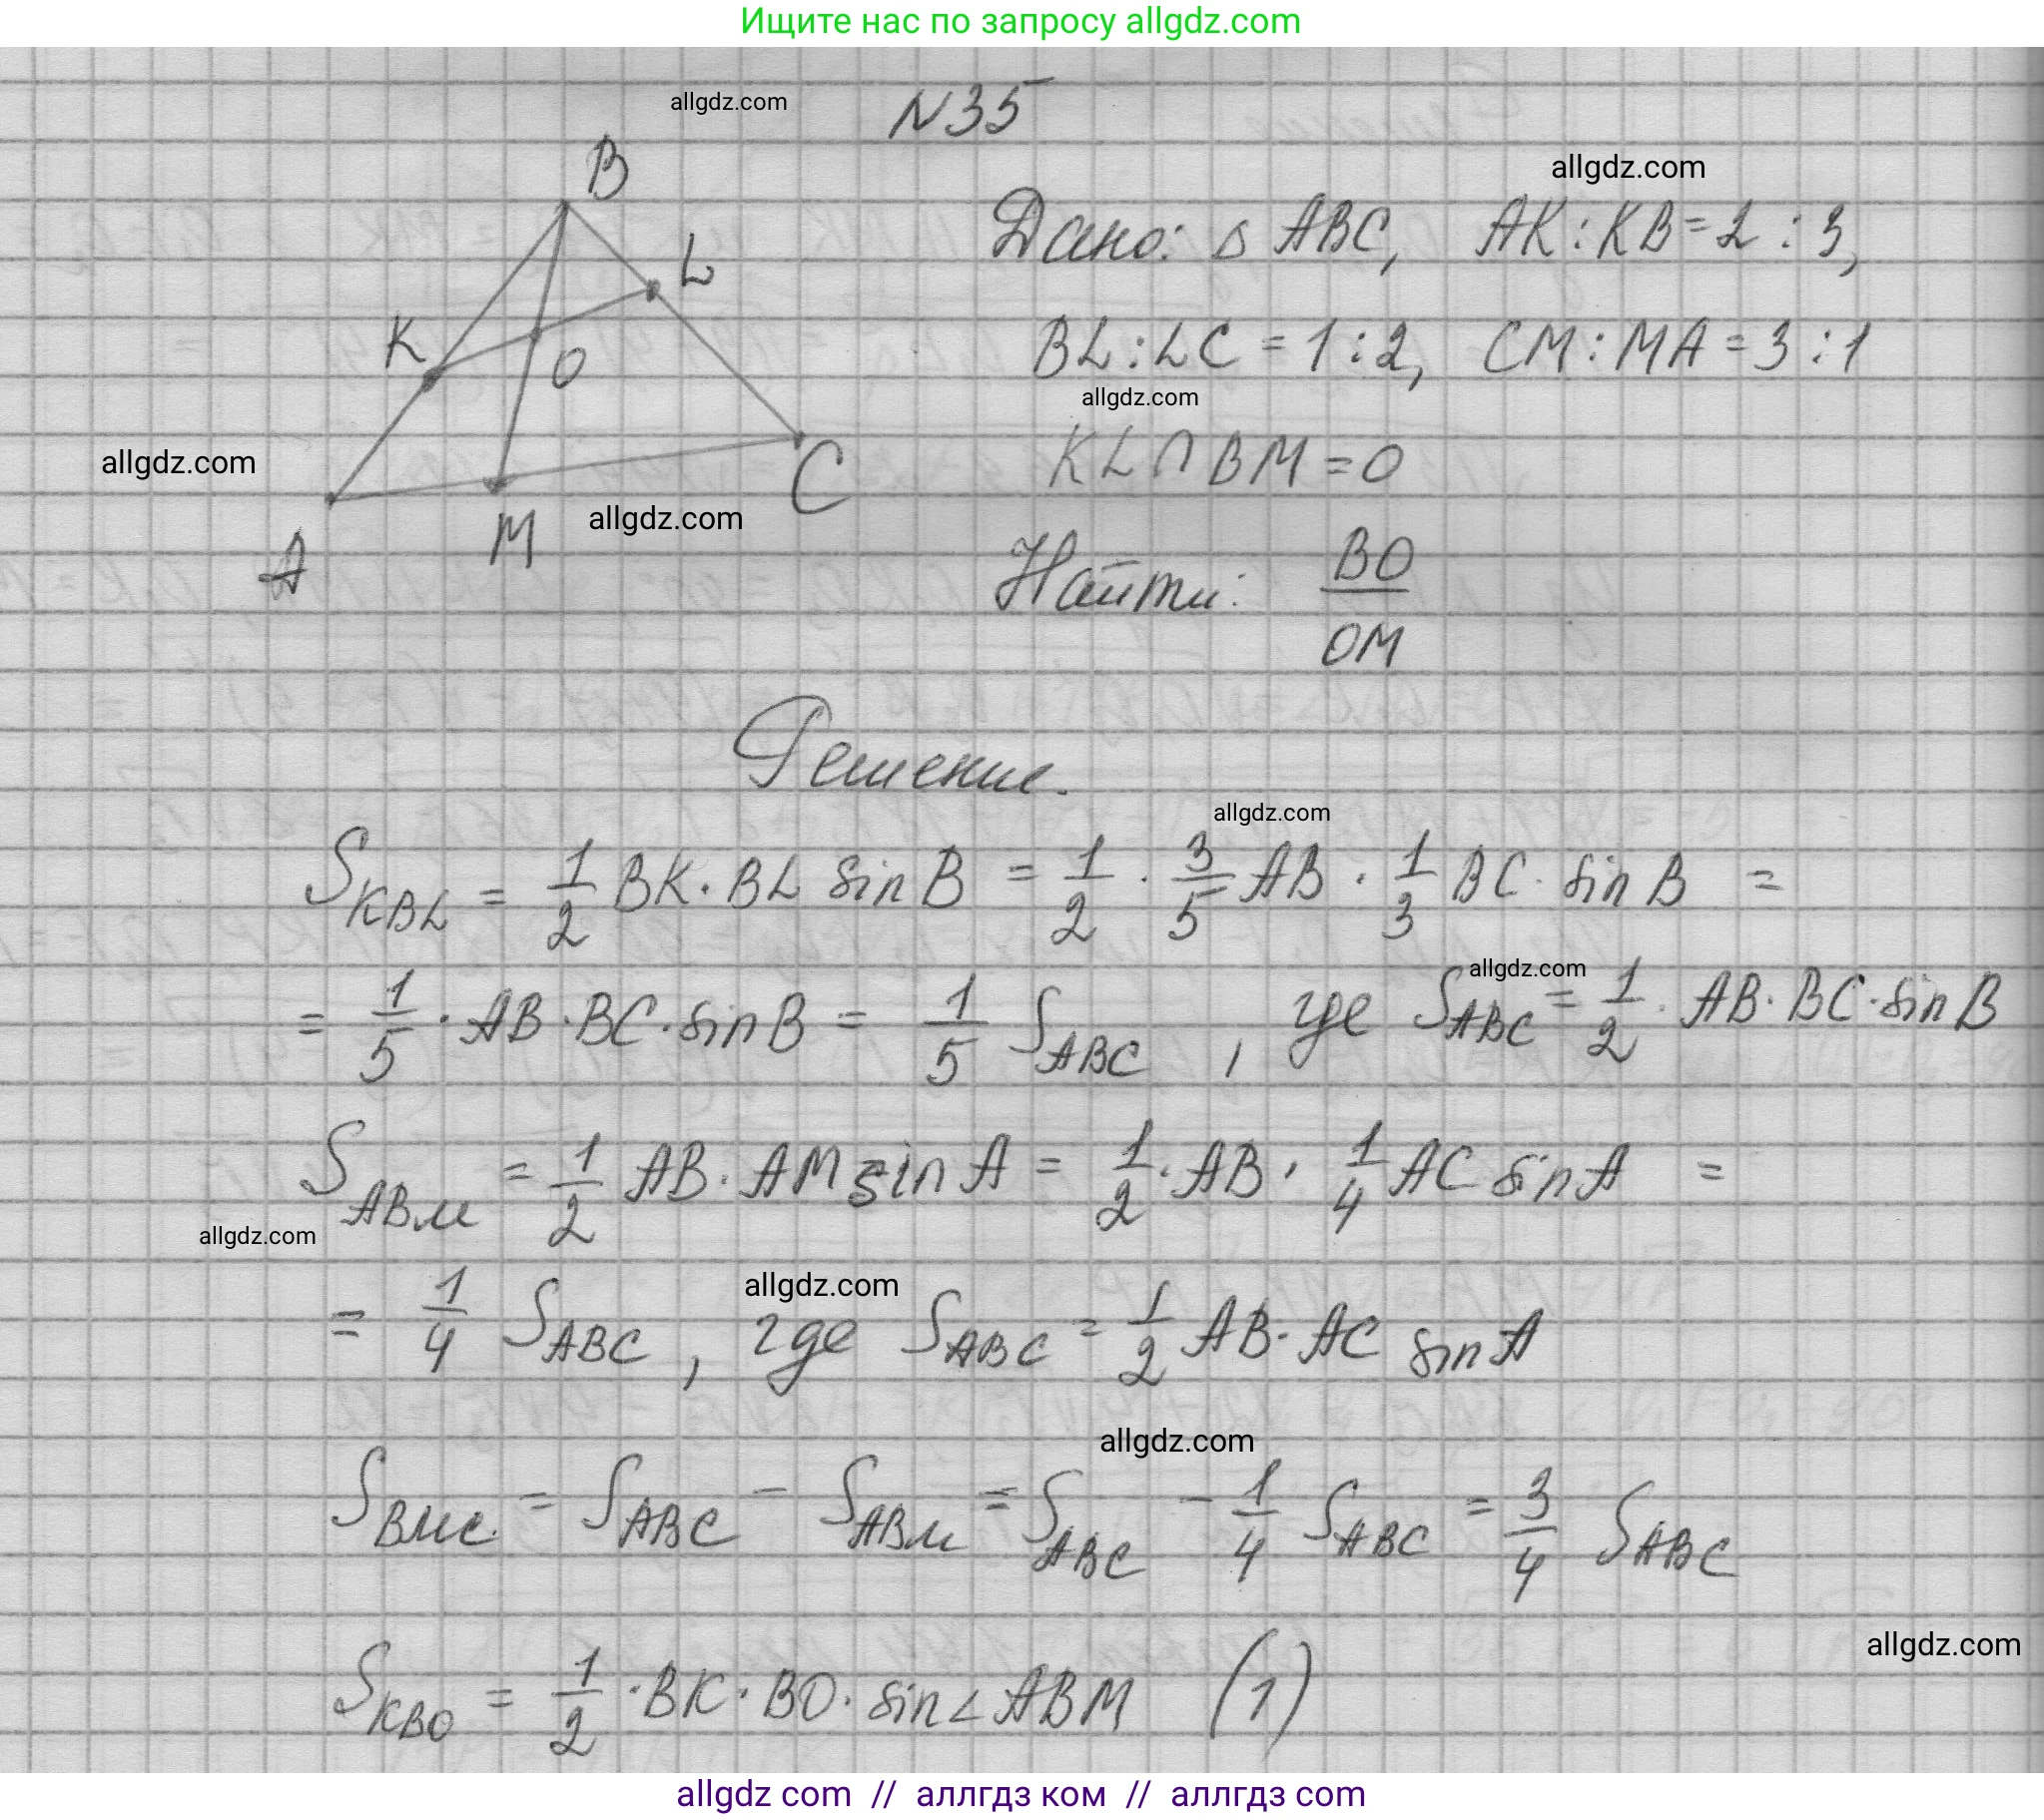 Ищите нас по запросу allgdz.com
allgdz.com
N35
B
allgdz.com
Дано: △ ABC, AK : KB = 2 : 3,
L
K
O
BL : LC = 1 : 2, CM : MA = 3 : 1
allgdz.com
allgdz.com
KL ∩ BM = O
C
allgdz.com
M
A
Найти: BO/OM
Решение.
allgdz.com
S_KBL = 1/2 BK · BL sin B = 1/2 · 3/5 AB · 1/3 BC · sin B =
allgdz.com
= 1/5 · AB · BC · sin B = 1/5 S_ABC , где S_ABC = 1/2 · AB · BC · sin B
S_ABM = 1/2 AB · AM sin A = 1/2 · AB · 1/4 AC sin A =
allgdz.com
allgdz.com
= 1/4 S_ABC , где S_ABC = 1/2 AB · AC sin A
allgdz.com
S_BMC = S_ABC - S_ABM = S_ABC - 1/4 S_ABC = 3/4 S_ABC
allgdz.com
S_KBO = 1/2 · BK · BO · sin ∠ ABM (1)
allgdz com // аллгдз ком // аллгдз com